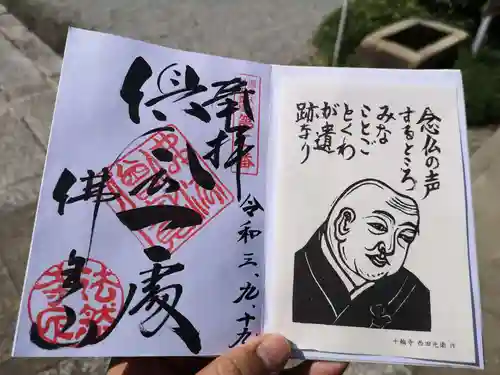 奉拝
令和三、九、十九
倶会一處
佛生山
法然寺印
念仏の声
するところ
みな
ことご
とくわ
が遺
跡なり
十輪寺 西田光衛 作